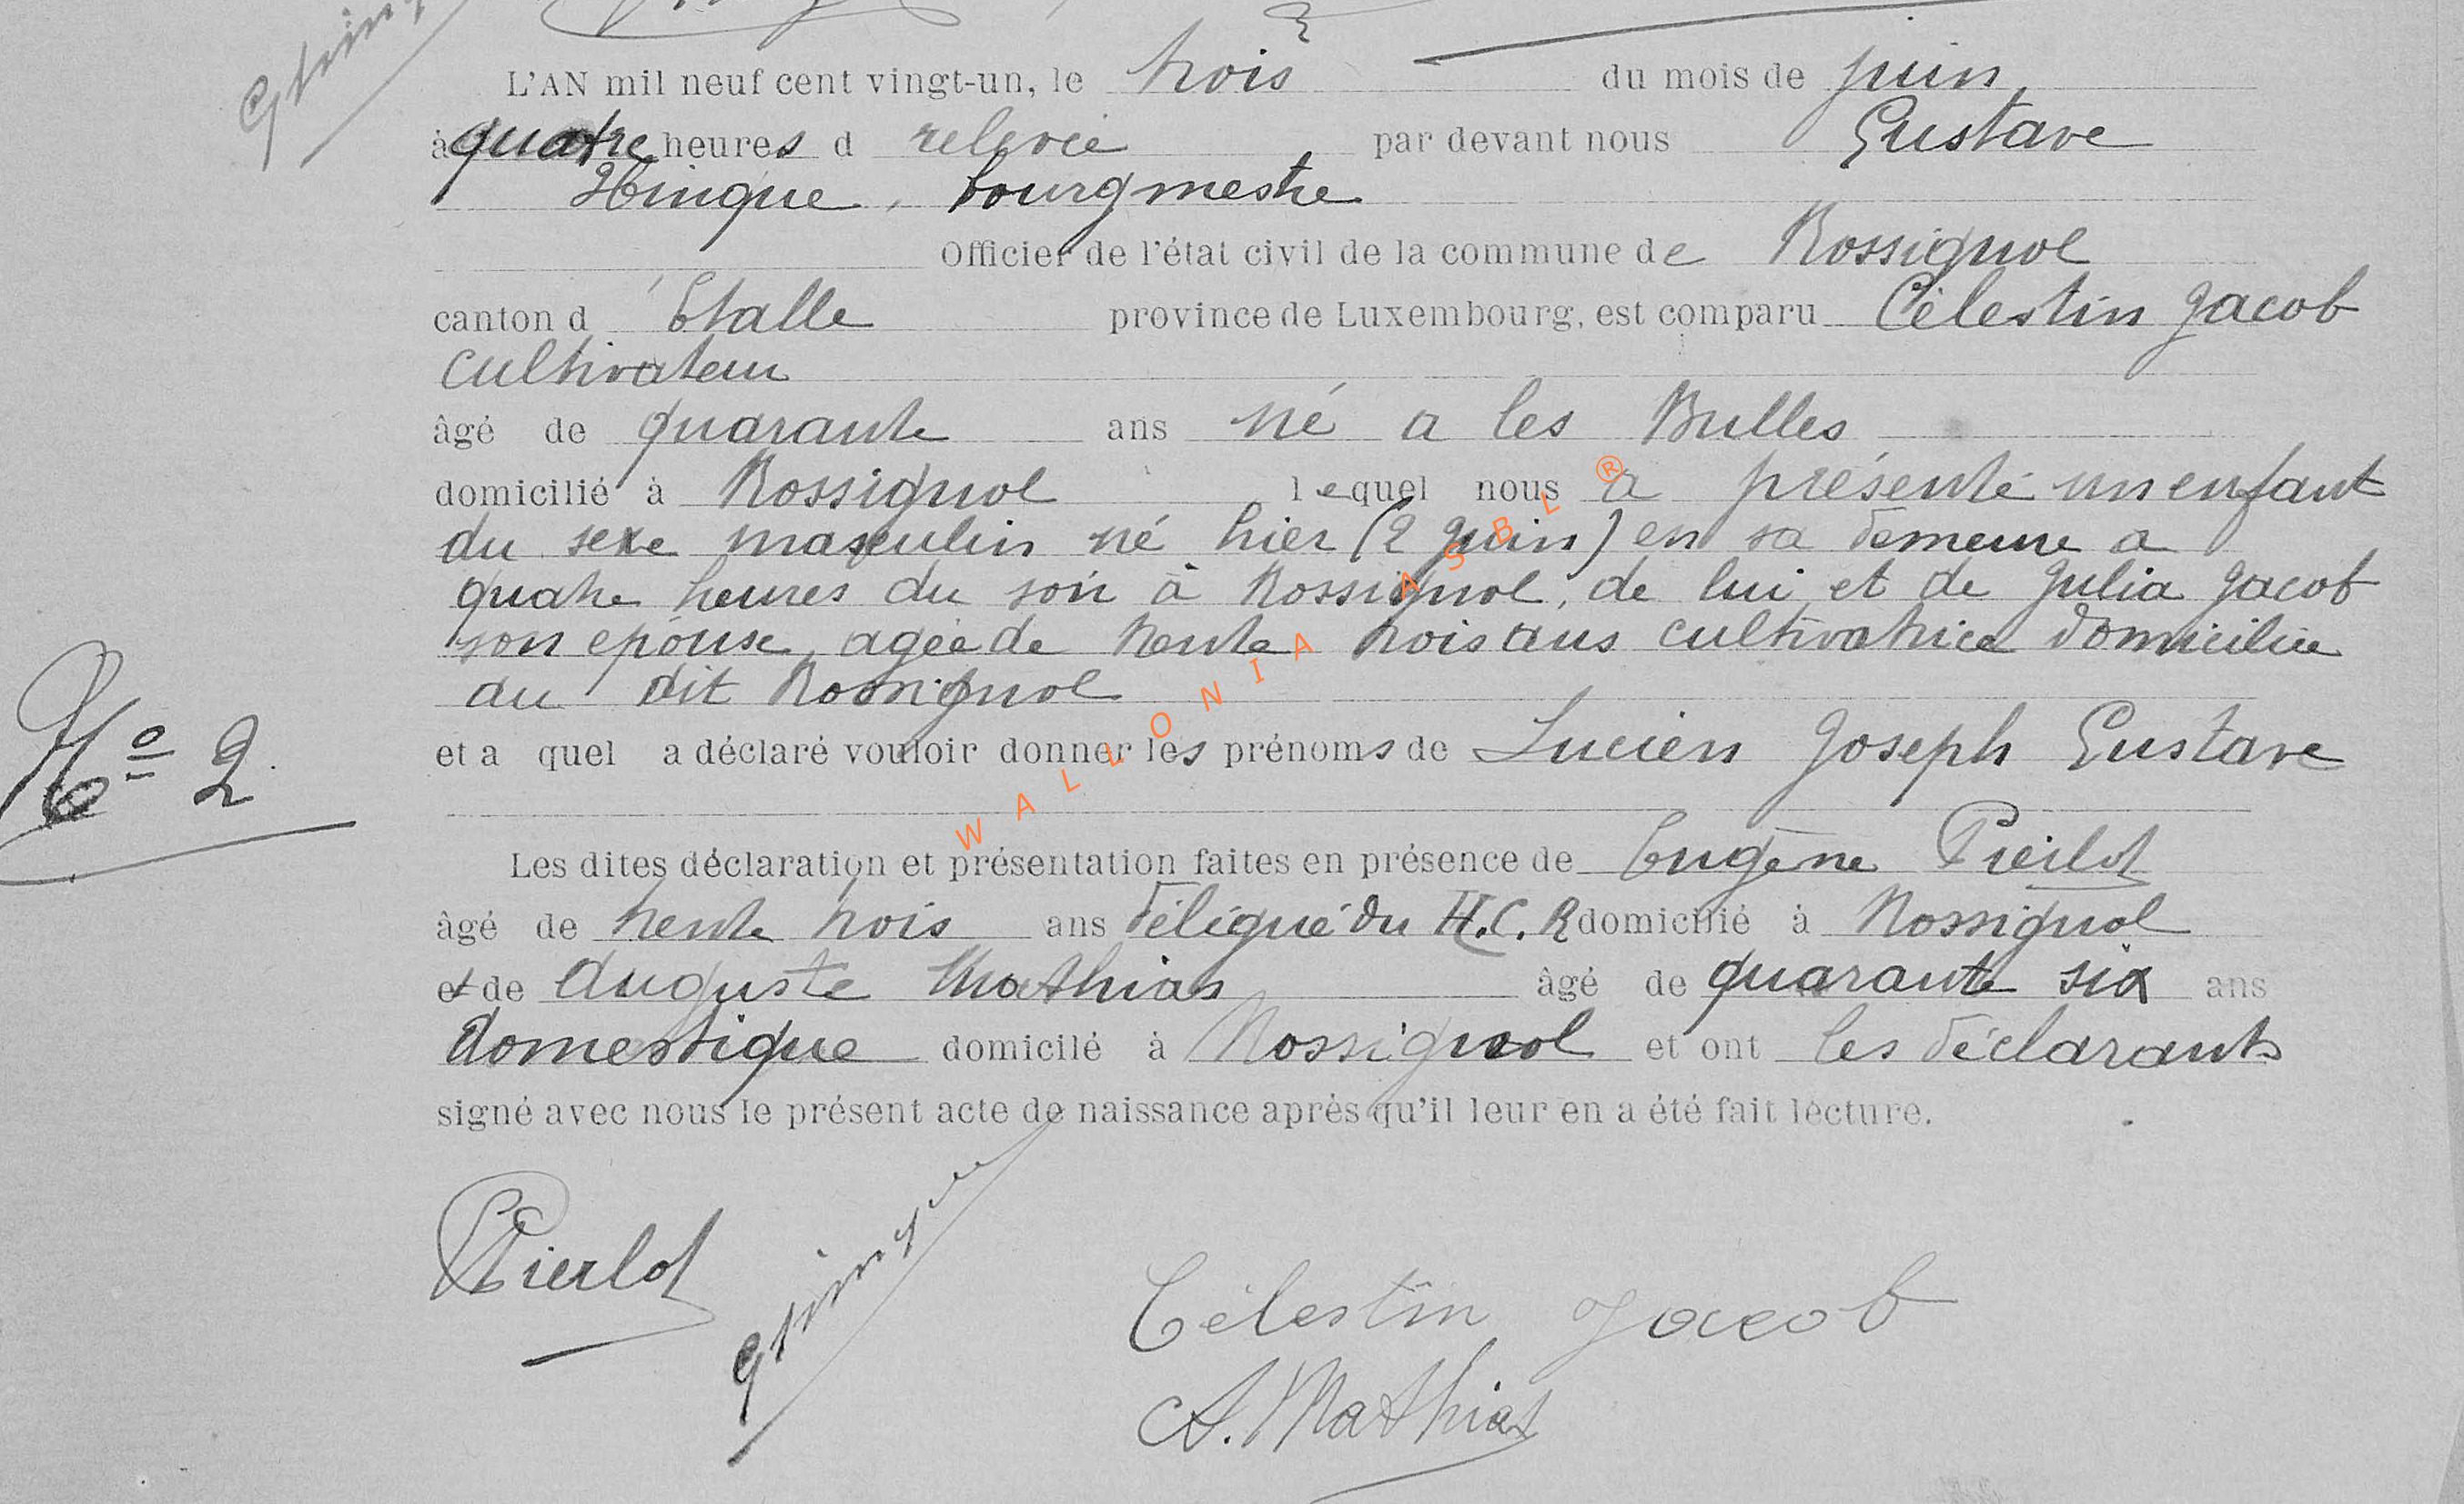 L'AN mil neuf cent vingt-un, le trois du mois de juin
à quatre heures d relevée par devant nous Gustave
Hinque, bourgmestre
Officier de l'état civil de la commune de Rossignol
canton d'Etalle province de Luxembourg, est comparu Célestin Jacob
cultivateur
âgé de quarante ans né a les Bulles
domicilié à Rossignol lequel nous a présenté un enfant
du sexe masculin né hier (2 juin) en sa demeure a
quatre heures du soir à Rossignol, de lui et de Julia Jacob
son epouse, agée de trente trois ans cultivatrice domiciliée
au dit Rossignol
No 2
et a quel a déclaré vouloir donner les prénoms de Lucien Joseph Gustave
Les dites déclaration et présentation faites en présence de Eugène Pierlot
âgé de trente trois ans délégué du H.C.R domicilié à Rossignol
et de Auguste Mathias âgé de quarante six ans
domestique domicilé à Rossignol et ont les déclarants
signé avec nous le présent acte de naissance après qu'il leur en a été fait lecture.
Pierlot
GHinque
Célestin Jacob
A. Mathias
WALLONIA ASBL ®